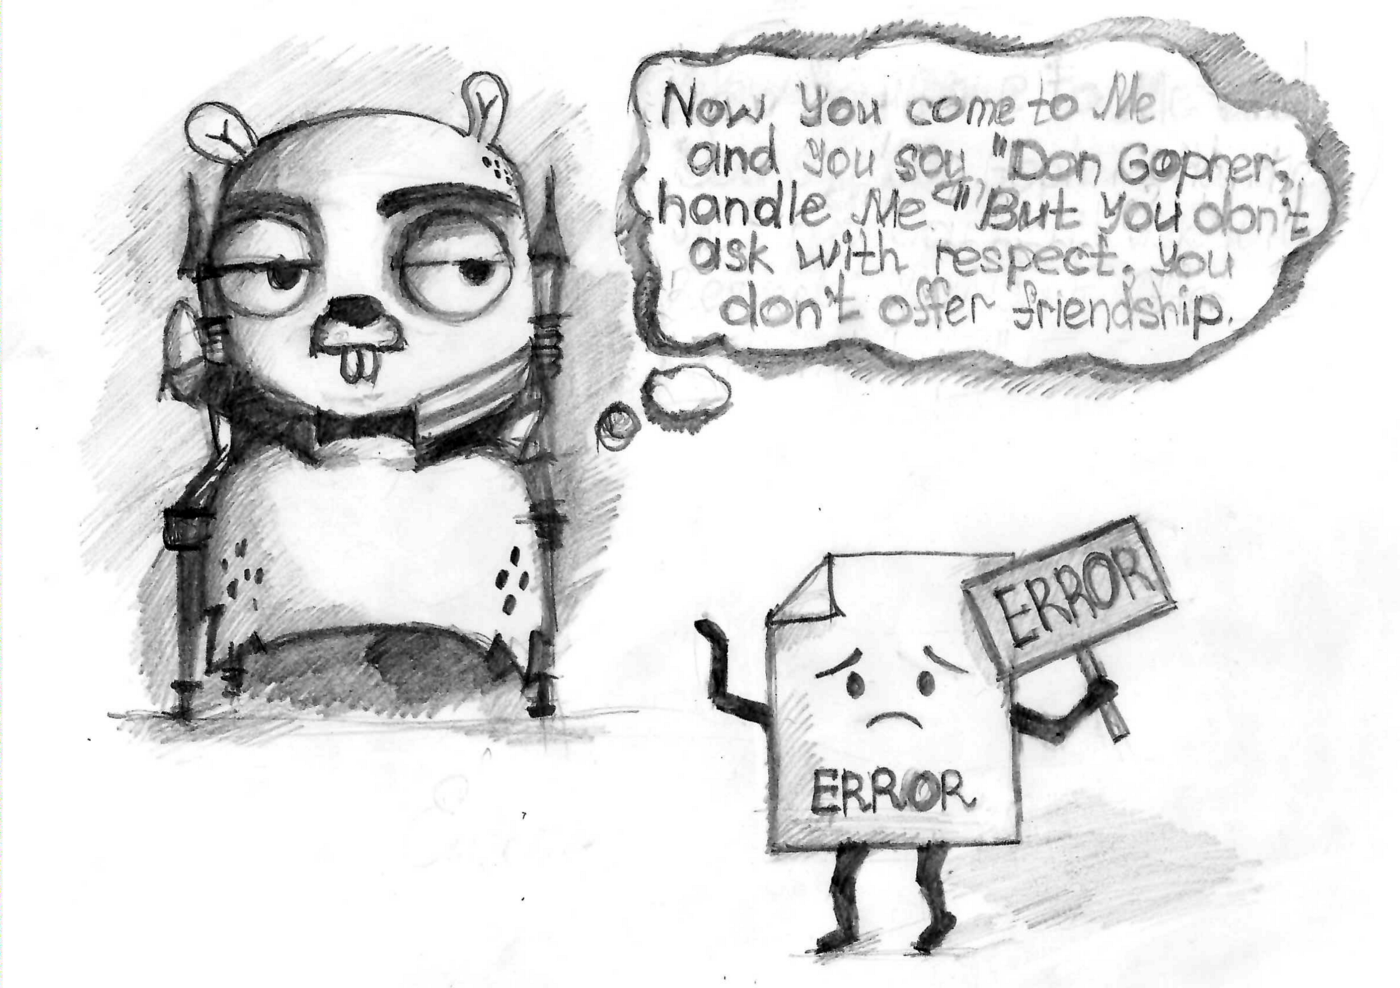 Now, You come to Me
and You say "Don Gopher,
handle Me." But You don't
ask with respect, You
don't offer friendship.
ERROR
ERROR